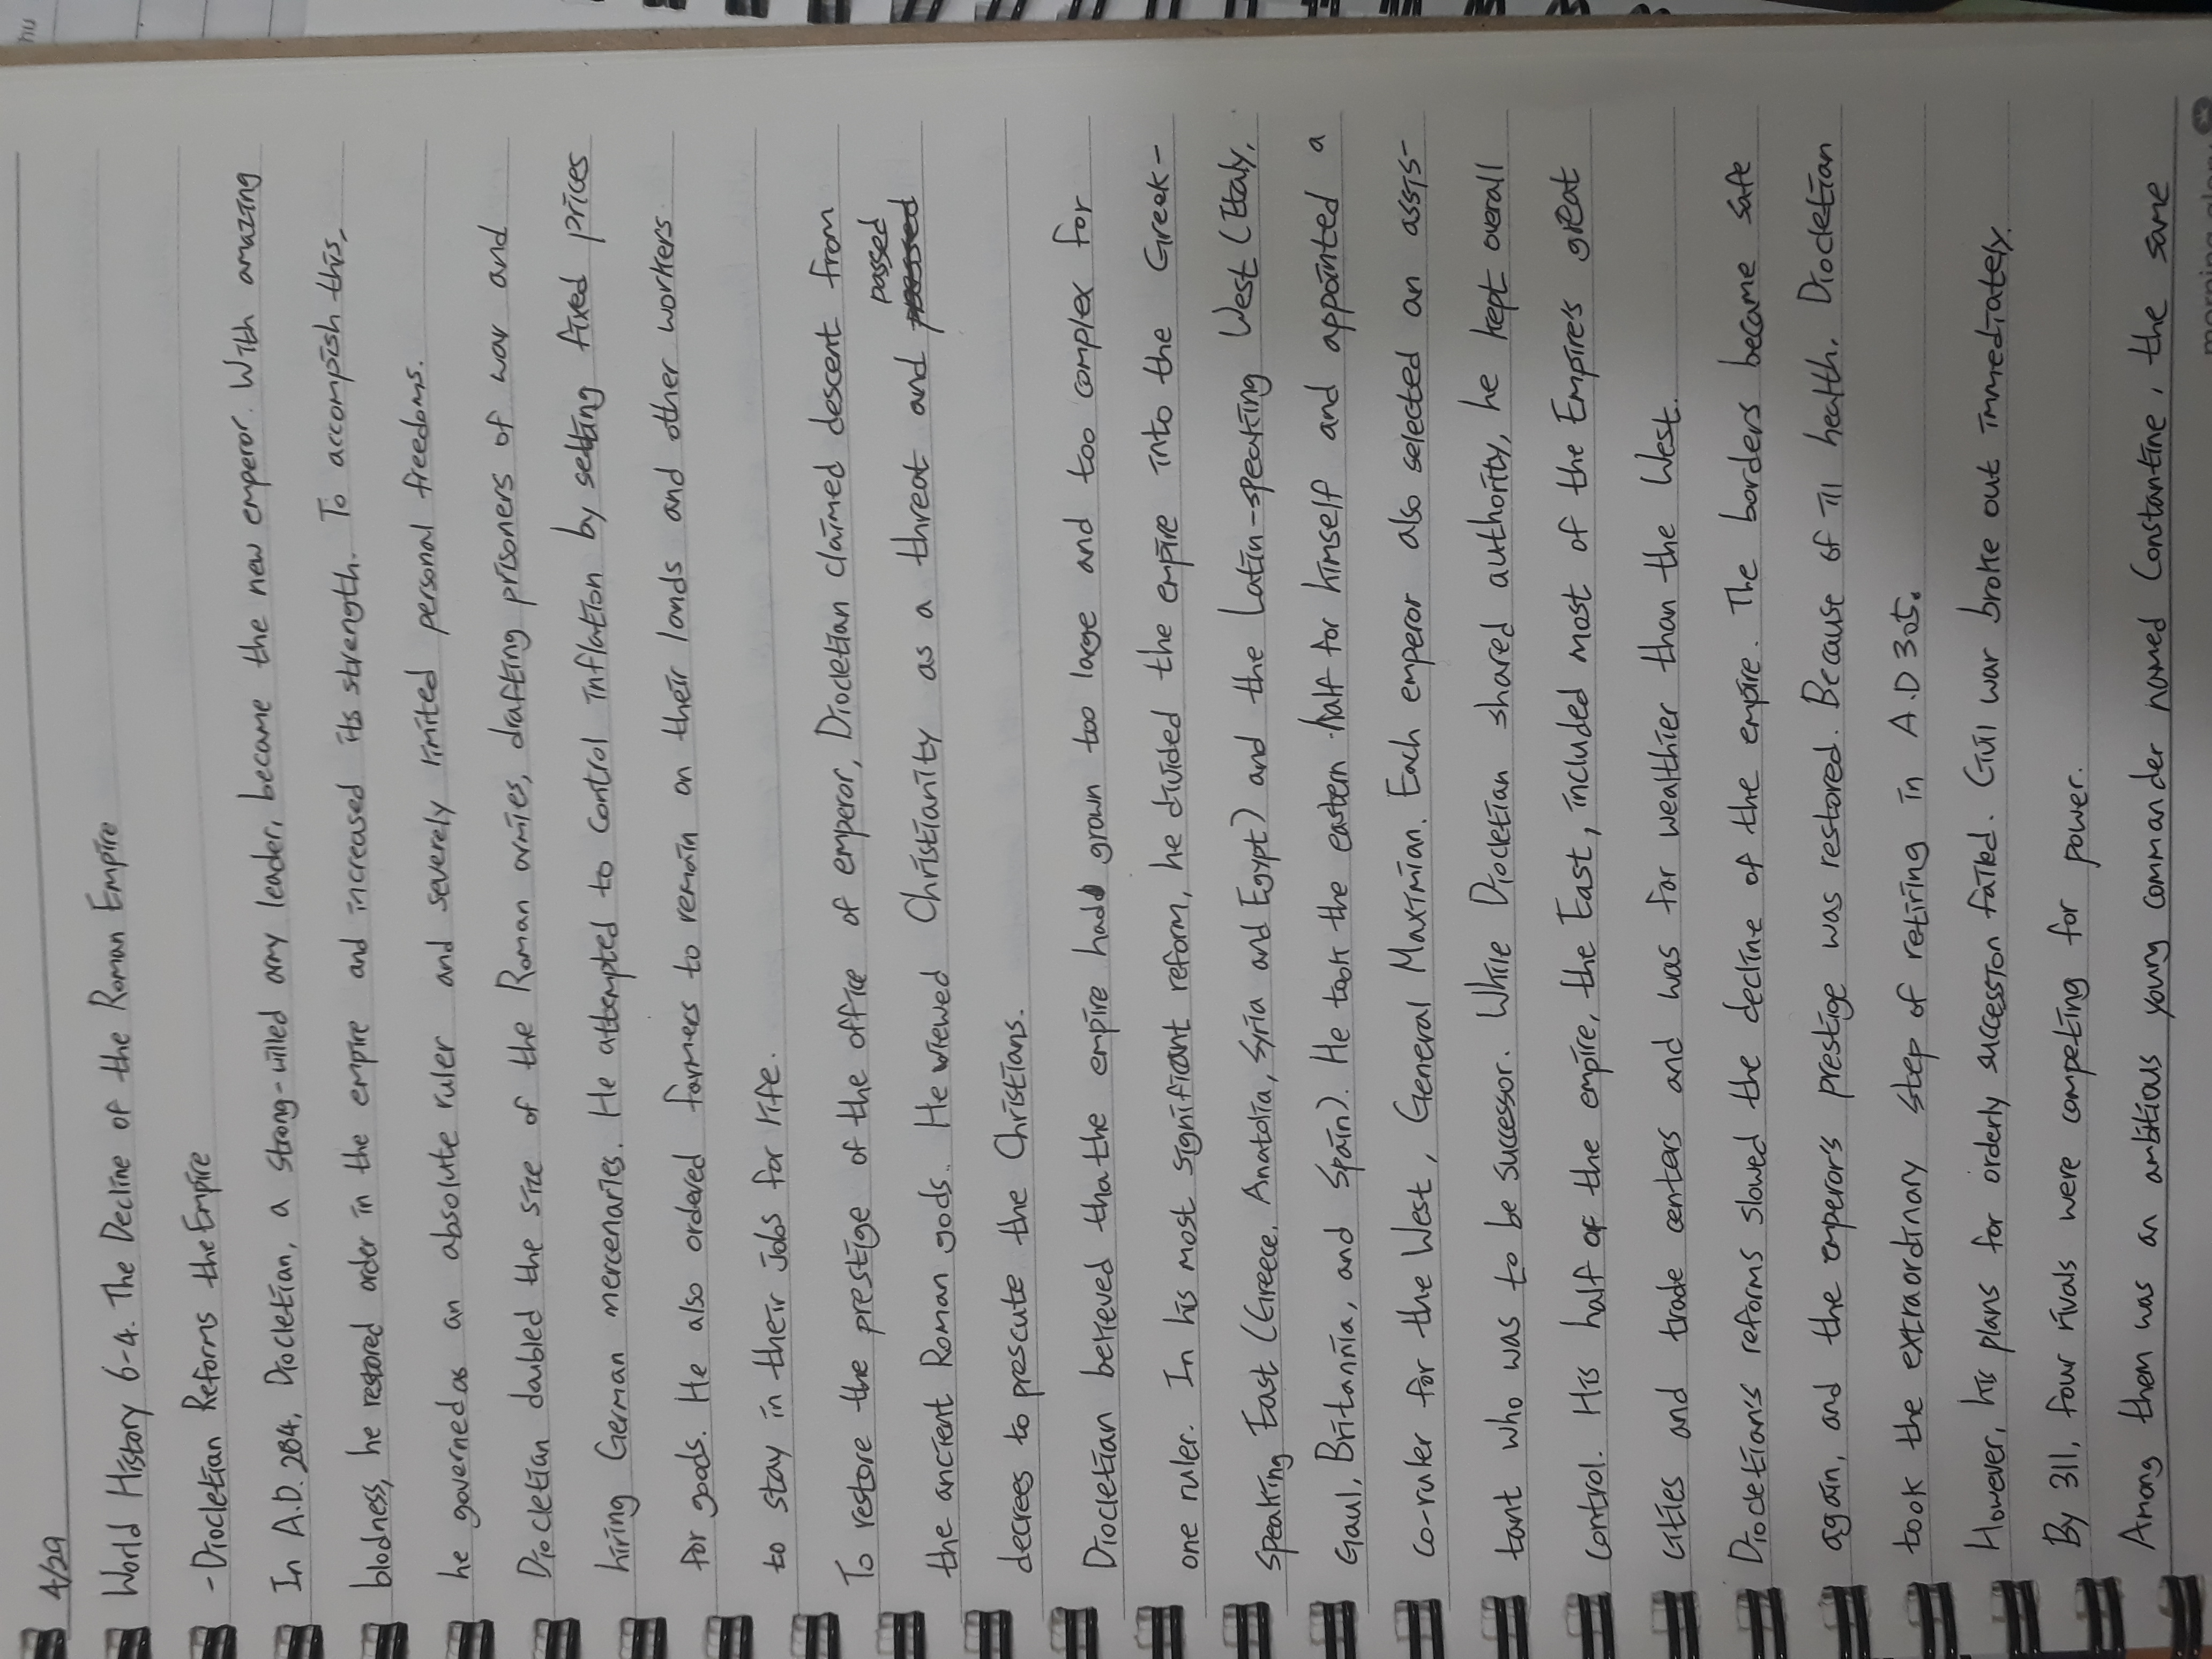 4/29
World History 6-4. The Decline of the Roman Empire
-Diocletian Reforms the Empire
In A.D. 284, Diocletian, a strong-willed army leader, became the new emperor. With amazing
blodness, he restored order in the empire and increased its strength. To accompish this,
he governed as an absolute ruler and severely limited personal freedoms.
Diocletian doubled the size of the Roman armies, drafting prisoners of war and
hiring German mercenaries. He attempted to control inflation by setting fixed prices
for goods. He also ordered farmers to remain on their lands and other workers
to stay in their jobs for life.
To restore the prestige of the office of emperor, Diocletian claimed descent from
the ancient Roman gods. He viewed Christianity as a threat and passed
decrees to prescute the Christians.
Diocletian believed that the empire had grown too large and too complex for
one ruler. In his most significant reform, he divided the empire into the Greek-
speaking East (Greece, Anatolia, Syria and Egypt) and the Latin-speaking West (Italy,
Gaul, Britannia, and Spain). He took the eastern half for himself and appointed a
co-ruler for the West, General Maximian. Each emperor also selected an assis-
tant who was to be successor. While Diocletian shared authority, he kept overall
control. His half of the empire, the East, included most of the Empire's great
cities and trade centers and was far wealthier than the West.
Diocletian's reforms slowed the decline of the empire. The borders became safe
again, and the emperor's prestige was restored. Because of ill health, Diocletian
took the extraordinary step of retiring in A.D 305.
However, his plans for orderly succession failed. Civil war broke out immediately.
By 311, four rivals were competing for power.
Among them was an ambitious young commander named Constantine, the same